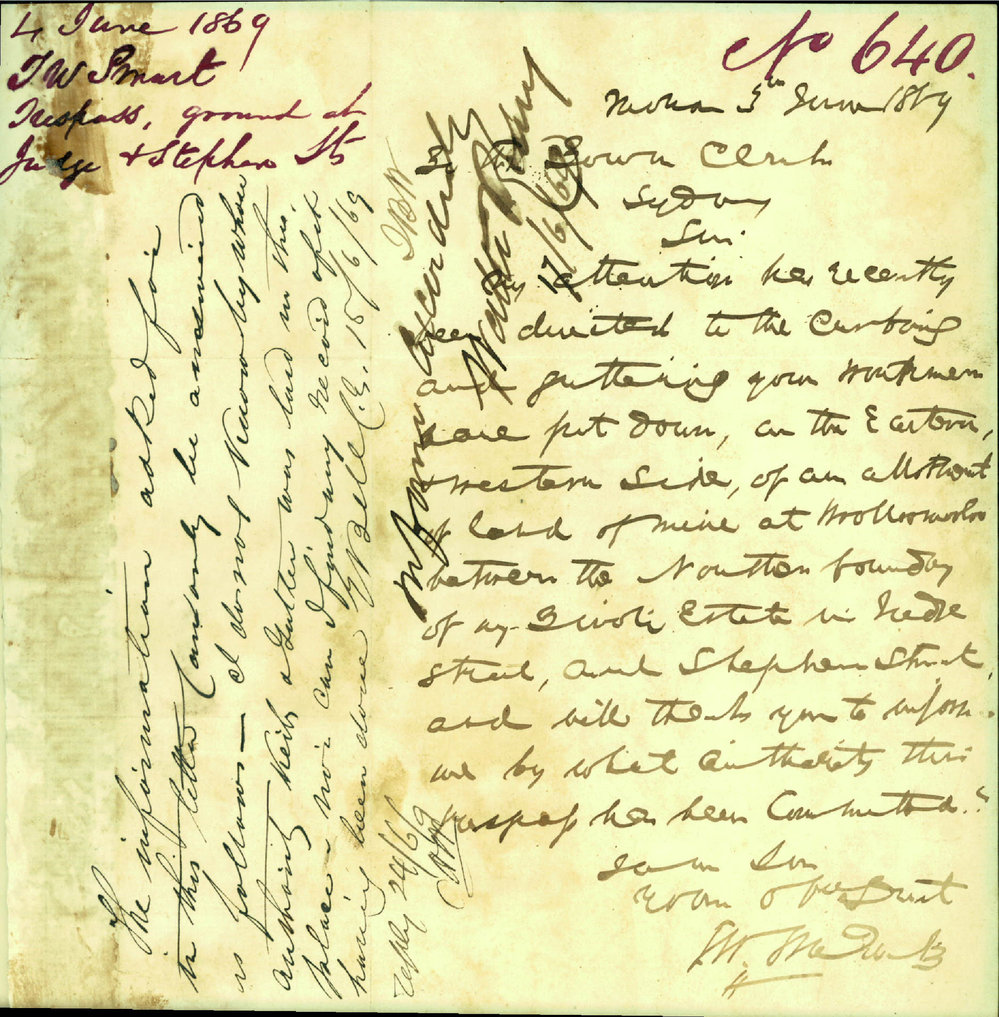 4 June 1869
T W Smart
Trespass, ground at
Judge & Stephen Sts
No 640.
Mona 3rd June 1869
The Town Clerk
Sydney
Sir
My attention has recently
been directed to the Curbing
and guttering your workmen
have put down, on the Eastern,
& western side, of an allotment
of land of mine at Woolloomooloo
between the Northern boundary
of my Tivoli Estate in
Street, and Stephen Street,
and will thank you to inform
me by what authority this
trespass has been Committed.
I am Sir
Your Obt Servt
The information asked for
in this letter can only be answered
as follows — I do not know by whose
authority Kerb & Gutter was laid in this
place nor can I find any record of it
having been done Bell C.E. 15/6/69
reply 24/6/9
inform accordingly
17/6/69